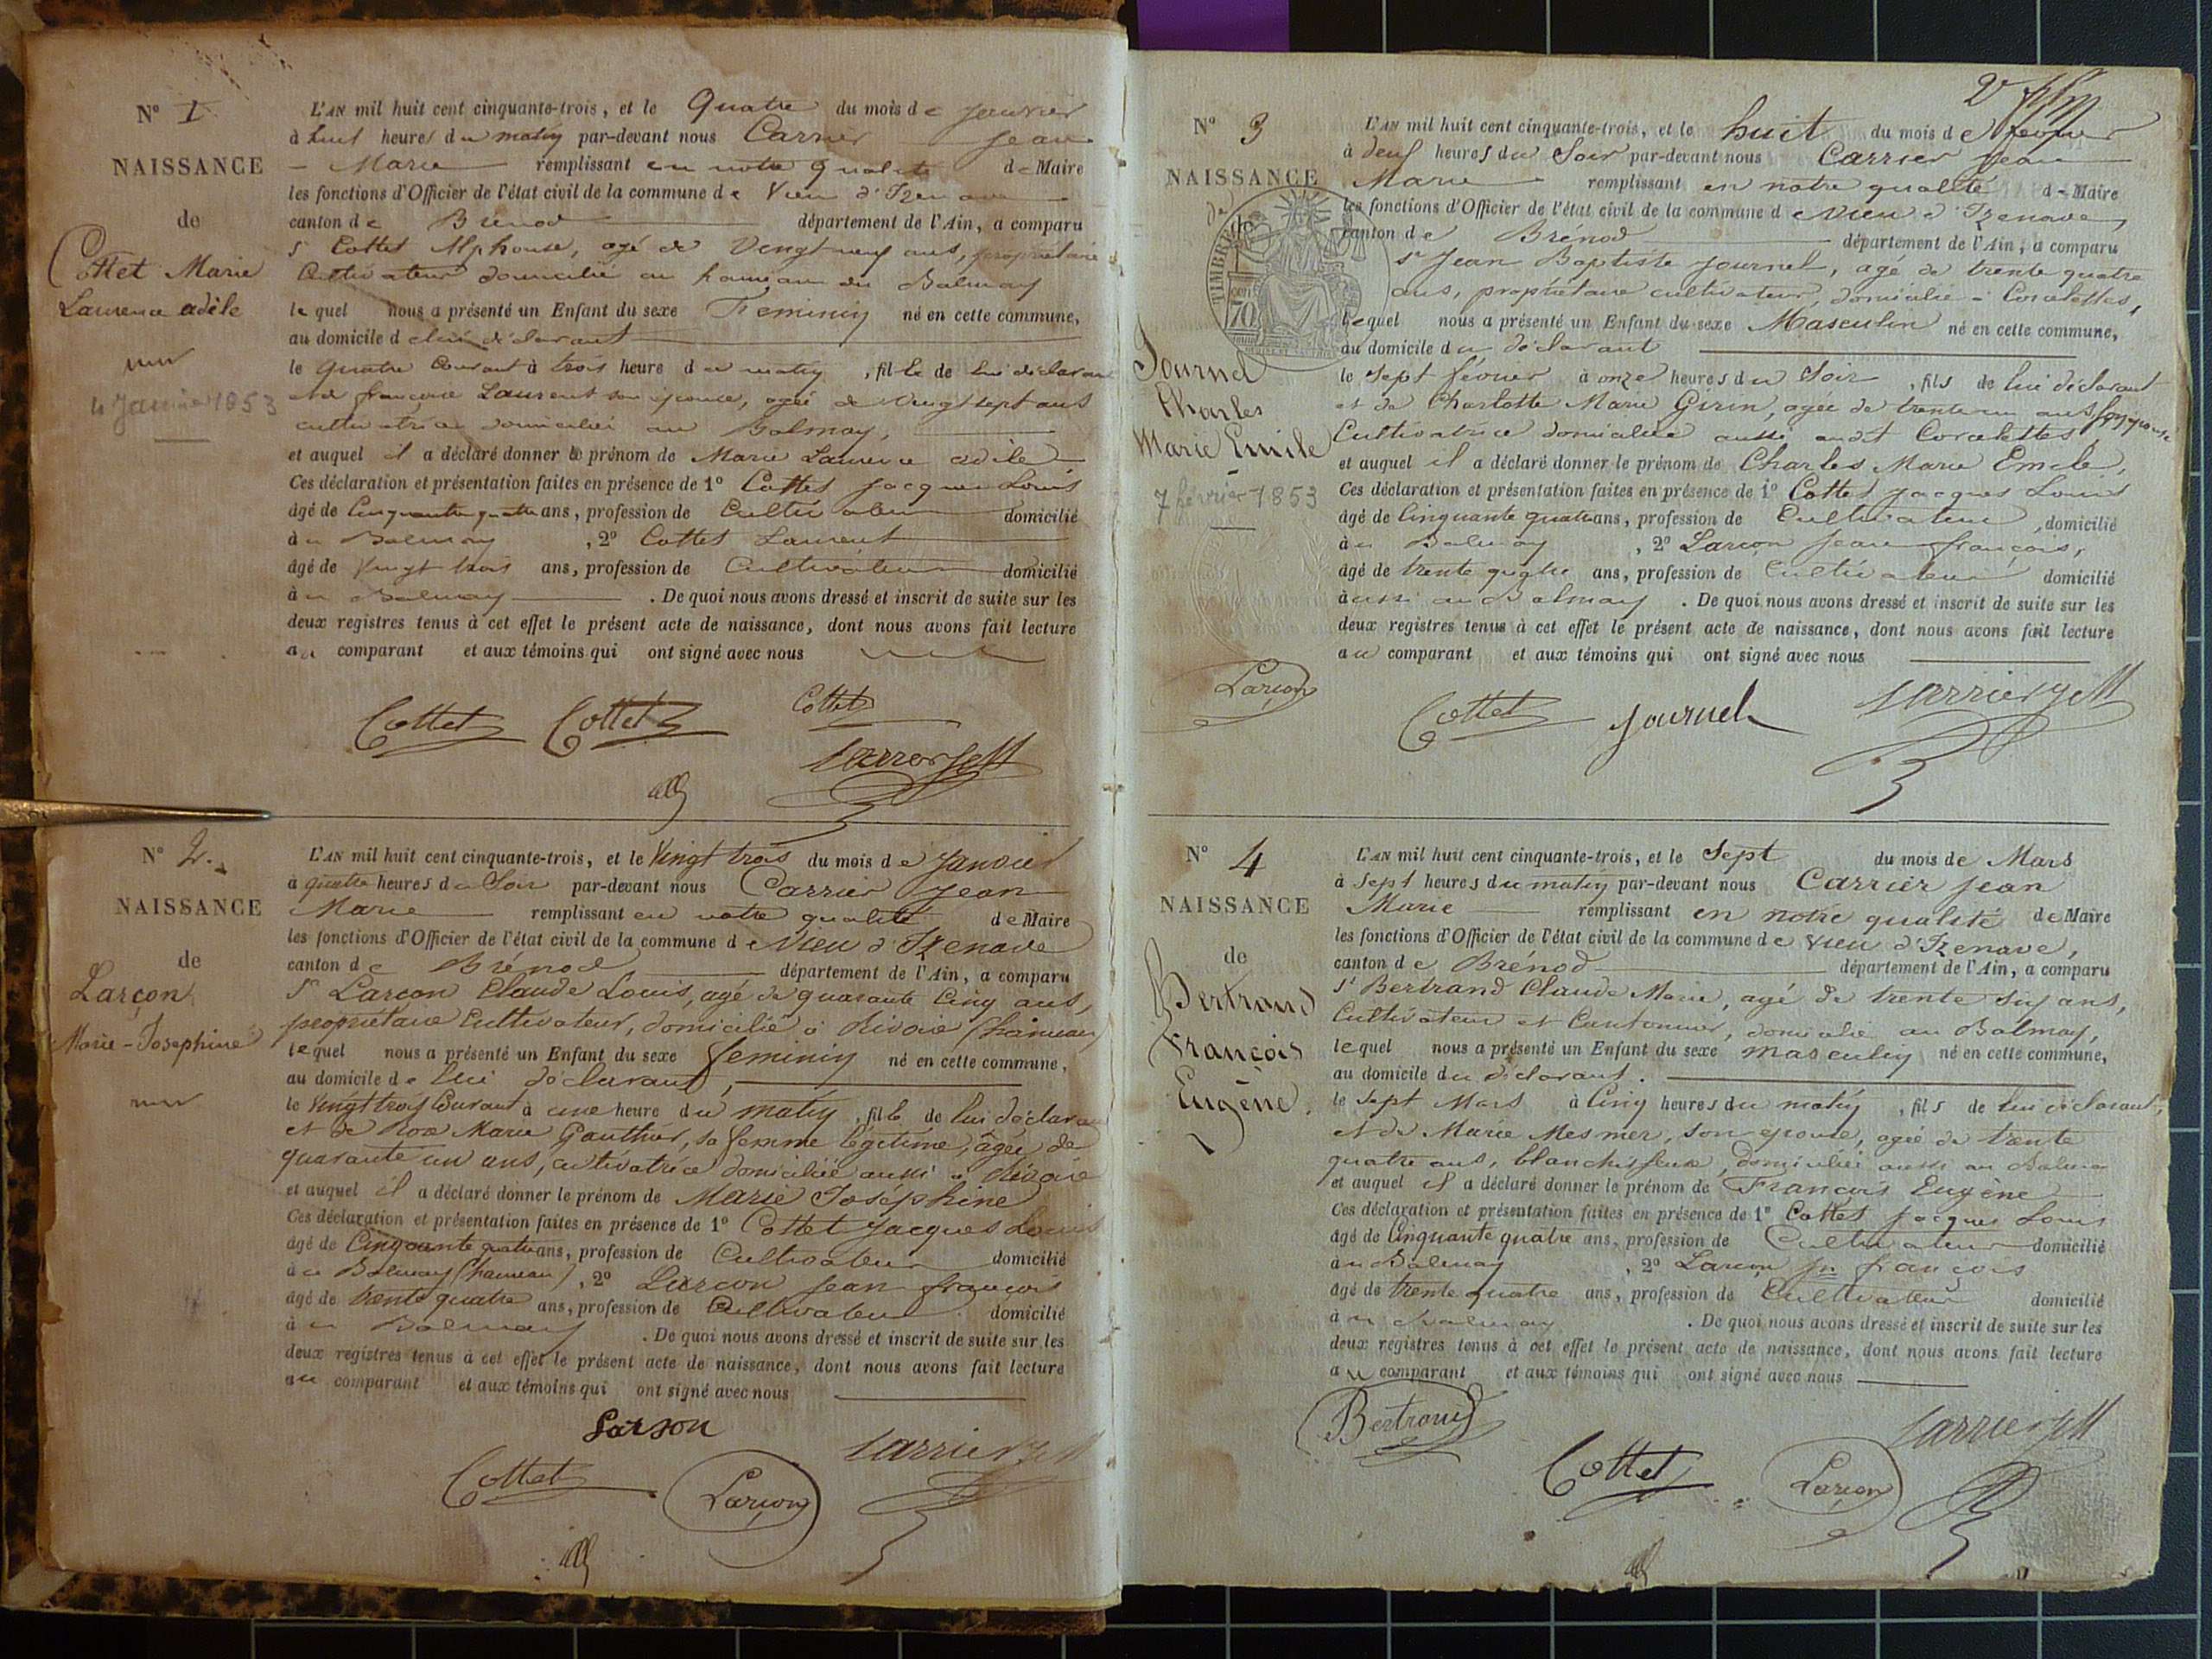 N° 1
NAISSANCE
de
Cottet Marie
Laurence adèle
4 Janvier 1853
L'AN mil huit cent cinquante-trois, et le Quatre du mois de Janvier
à huit heures du matin par-devant nous Carrier Jean
Marie remplissant en notre qualité de Maire
les fonctions d'Officier de l'état civil de la commune de Vieu d'Izenave
canton de Brénod département de l'Ain, a comparu
Sr Cottet Alphonse, agé de Vingt neuf ans, propriétaire
Cultivateur domicilié au hameau du Balmay
lequel nous a présenté un Enfant du sexe Feminin né en cette commune,
au domicile de lui déclarant
le quatre Courant à trois heure du matin, fille de lui déclarant
et de françoise Laurent son épouse, agée de Vingt sept ans
cultivatrice domiciliée au Balmay,
et auquel il a déclaré donner le prénom de Marie Laurence adèle
Ces déclaration et présentation faites en présence de 1° Cottet Jacques Louis
âgé de Cinquante quatre ans, profession de Cultivateur domicilié
au Balmay, 2° Cottet Laurent
âgé de Vingt trois ans, profession de Cultivateur domicilié
au Balmay. De quoi nous avons dressé et inscrit de suite sur les
deux registres tenus à cet effet le présent acte de naissance, dont nous avons fait lecture
au comparant et aux témoins qui ont signé avec nous
Cottet Cottet Cottet
N° 2.
NAISSANCE
de
Larçon
Marie-Josephine
L'AN mil huit cent cinquante-trois, et le Vingt trois du mois de Janvier
à quatre heures du Soir par-devant nous Carrier Jean
Marie remplissant en notre qualité de Maire
les fonctions d'Officier de l'état civil de la commune de Vieu d'Izenave
canton de Brénod département de l'Ain, a comparu
Sr Larçon Claude Louis, agé de quarante Cinq ans,
propriétaire Cultivateur, domicilié à Rivoire (hameau)
lequel nous a présenté un Enfant du sexe feminin né en cette commune,
au domicile de lui déclarant,
le Vingt trois Courant à une heure du matin, fille de lui déclarant
et de Rose Marie Gauthier, sa femme légitime, âgée de
quarante un ans, cultivatrice domiciliée aussi à Rivoire
et auquel il a déclaré donner le prénom de Marie Joséphine
Ces déclaration et présentation faites en présence de 1° Cottet Jacques Louis
âgé de Cinquante quatre ans, profession de Cultivateur domicilié
au Balmay (hameau), 2° Larçon Jean françois
âgé de trente quatre ans, profession de Cultivateur domicilié
au Balmay. De quoi nous avons dressé et inscrit de suite sur les
deux registres tenus à cet effet le présent acte de naissance, dont nous avons fait lecture
au comparant et aux témoins qui ont signé avec nous
Larson
Cottet Larçon
N° 3
NAISSANCE
de
TIMBRE
70
Journel
Charles
Marie Emile
7 février 1853
L'AN mil huit cent cinquante-trois, et le huit du mois de fevrier
à deux heures du Soir par-devant nous Carrier Jean
Marie remplissant en notre qualité de Maire
les fonctions d'Officier de l'état civil de la commune de Vieu d'Izenave,
canton de Brénod département de l'Ain, a comparu
Sr Jean Baptiste Journel, agé de trente quatre
ans, propriétaire cultivateur, domicilié à Corcelettes,
lequel nous a présenté un Enfant du sexe Masculin né en cette commune,
au domicile du déclarant
le Sept février à onze heures du Soir, fils de lui déclarant
et de Charlotte Marie Girin, agée de trente un ans son épouse
Cultivatrice domiciliée aussi audit Corcelettes,
et auquel il a déclaré donner le prénom de Charles Marie Emile,
Ces déclaration et présentation faites en présence de 1° Cottet Jacques Louis
âgé de Cinquante quatre ans, profession de Cultivateur, domicilié
au Balmay, 2° Larçon Jean françois,
âgé de trente quatre ans, profession de Cultivateur domicilié
aussi au Balmay. De quoi nous avons dressé et inscrit de suite sur les
deux registres tenus à cet effet le présent acte de naissance, dont nous avons fait lecture
au comparant et aux témoins qui ont signé avec nous
Larçon Cottet Journel
N° 4
NAISSANCE
de
Bertrand
François
Eugène.
L'AN mil huit cent cinquante-trois, et le Sept du mois de Mars
à Sept heures du matin par-devant nous Carrier Jean
Marie remplissant en notre qualité de Maire
les fonctions d'Officier de l'état civil de la commune de Vieu d'Izenave,
canton de Brénod département de l'Ain, a comparu
Sr Bertrand Claude Marie, agé de trente six ans,
Cultivateur et Cantonnier, domicilié au Balmay,
lequel nous a présenté un Enfant du sexe masculin né en cette commune,
au domicile du déclarant.
le Sept Mars à Cinq heures du matin, fils de lui déclarant,
et de Marie Mesmer, son epouse, agée de trente
quatre ans, blanchisseuse, domiciliée aussi au Balmay
et auquel il a déclaré donner le prénom de François Eugène
Ces déclaration et présentation faites en présence de 1° Cottet Jacques Louis
âgé de Cinquante quatre ans, profession de Cultivateur domicilié
au Balmay, 2° Larçon Jn françois
âgé de trente quatre ans, profession de Cultivateur domicilié
au Balmay. De quoi nous avons dressé et inscrit de suite sur les
deux registres tenus à cet effet le présent acte de naissance, dont nous avons fait lecture
au comparant et aux témoins qui ont signé avec nous
Bertrand
Cottet Larçon